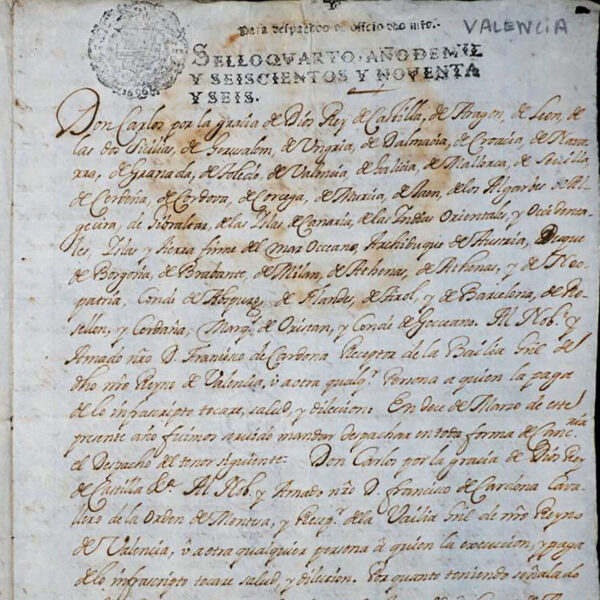 Para despachos de officio dos mrs.
VALENCIA
SELLO QVARTO, AÑO DE MIL
Y SEISCIENTOS Y NOVENTA
Y SEIS.
Don Carlos por la gracia de Dios Rey de Castilla, de Aragon, de Leon, de
las dos Sicilias, de Gerusalem, de Ungria, de Dalmacia, de Croacia, de Nava-
rra, de Granada, de Toledo, de Valencia, de Galicia, de Mallorca, de Sevilla
de Cerdeña, de Cordova, de Corcega, de Murcia, de Iaen, de los Algarbes de Al-
geçira, de Gibraltar, de las Islas de Canaria, de las Indias Orientales, y Occidenta-
les, Islas y tierra firme del mar Occeano, Archiduque de Austria, Duque
de Borgoña, de Brabante, de Milan, de Athenas, de Athenas, y de Neo-
patria, Conde de Abspurg, de Flandes, de Tirol, y de Barcelona, de Ro-
sellon, y Cerdaña, Marq.s de Oristan, y Conde de Goceano. Al Nob.e y
Amado nřo D. Francisco de Cardona Receptor de la Bailia Gñl del
dho nřo Reyno de Valencia, ò a otra qualq.r Persona a quien la paga
de lo infrascripto tocare, salud, y dileccion. En doce de Marzo de este
presente año fuimos servido mandar despachar en toda forma de Canc.ria
el Despacho del tenor siguiente. Don Carlos por la gracia de Dios Rey
de Castilla &.a Al Nob. y Amado nřo D. Francisco de Cardona Cava-
llero de la Orden de Montesa, y Recep.r de la Bailia Gñl de nřo Reyno
de Valencia, ò a otra qualquier persona à quien la execucion, y paga
de lo infrascripto tocare salud, y dileccion. Por quanto teniendo señalado